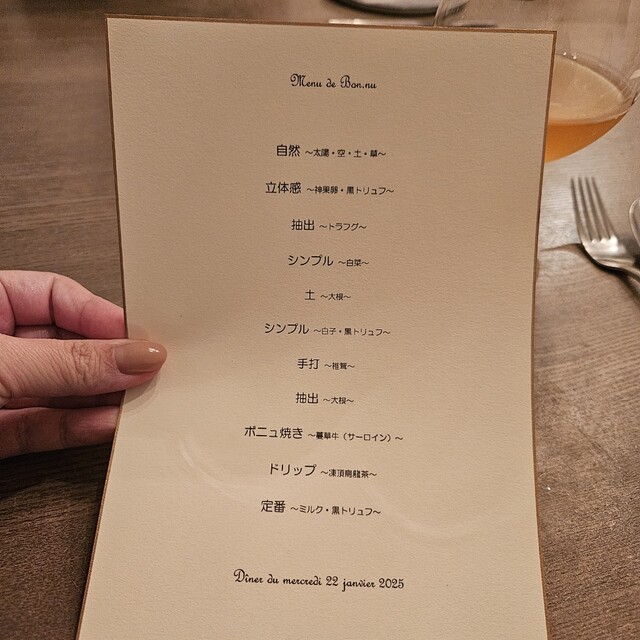 Menu de Bon.nu
自然 〜太陽・空・土・草〜
立体感 〜神果卵・黒トリュフ〜
抽出 〜トラフグ〜
シンプル 〜白菜〜
土 〜大根〜
シンプル 〜白子・黒トリュフ〜
手打 〜椎茸〜
抽出 〜大根〜
ボニュ焼き 〜蔓草牛（サーロイン）〜
ドリップ 〜凍頂烏龍茶〜
定番 〜ミルク・黒トリュフ〜
Dîner du mercredi 22 janvier 2025